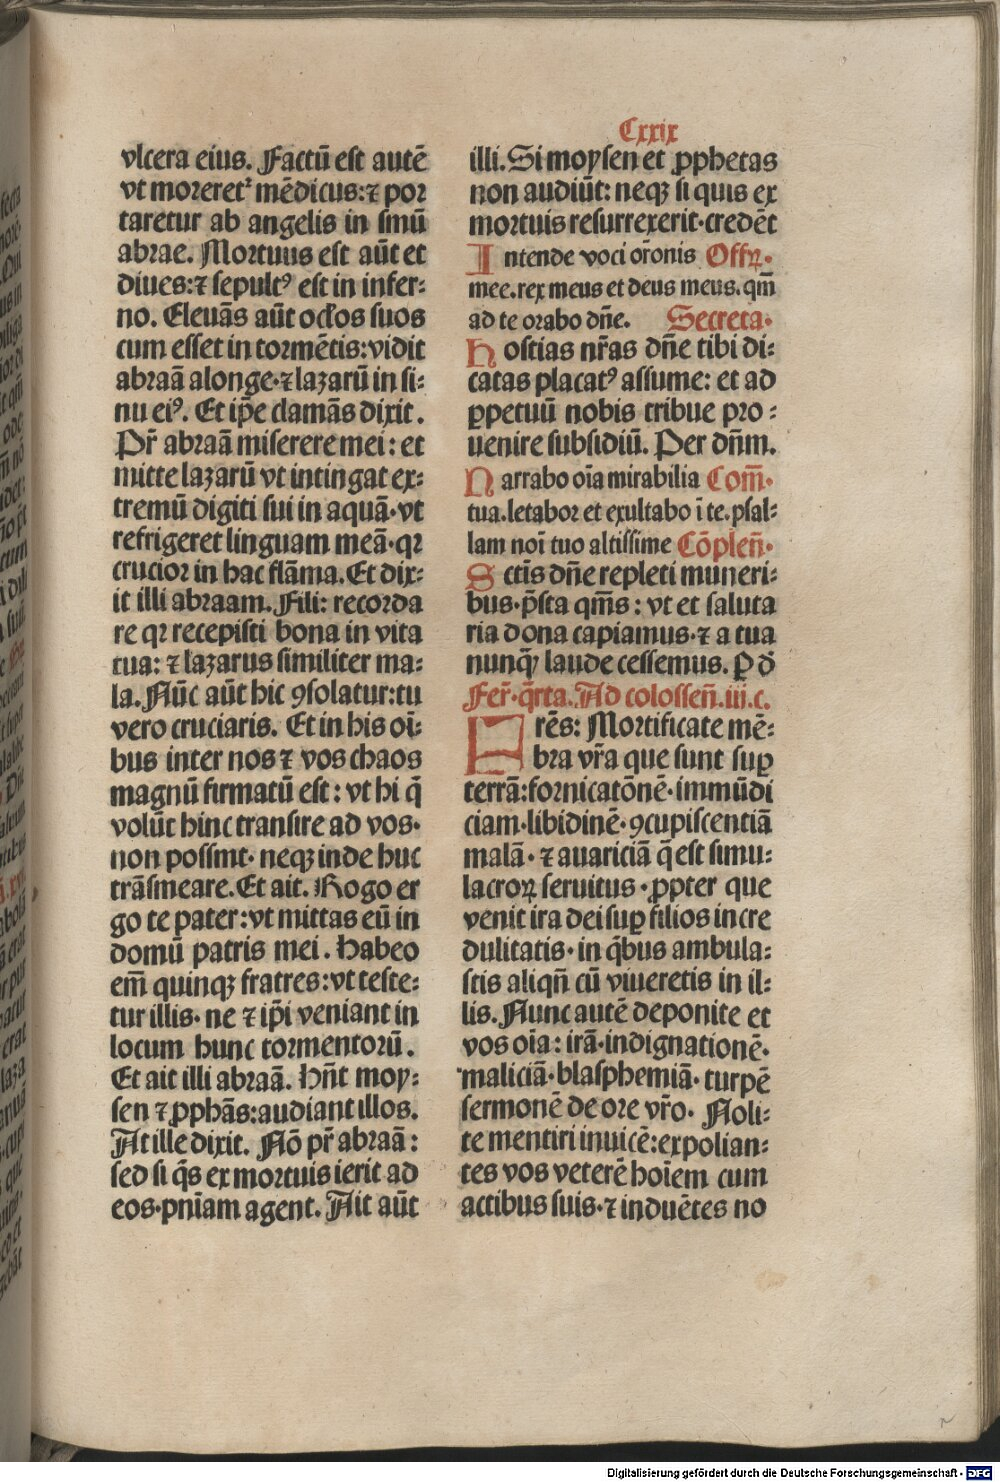 Cxxix
vlcera eius. Factū est autē
vt moreretᷣ mēdicus:⁊ por
taretur ab angelis in sinū
abrae. Mortuus est aūt et
diues:⁊ sepultꝰ est in infer⸗
no. Eleuās aūt oc̄los suos
cum esset in tormētis:vidit
abraā alonge·⁊ lazarū in si⸗
nu eiꝰ. Et ip̄e clamās dixit.
Pr̄ abraā miserere mei: et
mitte lazarū vt intingat ex⸗
tremū digiti sui in aquā·vt
refrigeret linguam meā·qꝛ
crucior in hac flāma. Et dix⸗
it illi abraam. Fili: recorda
re qꝛ recepisti bona in vita
tua: ⁊ lazarus similiter ma⸗
la. Nūc aūt hic ꝯsolatur:tu
vero cruciaris. Et in his oī⸗
bus inter nos ⁊ vos chaos
magnū firmatū est: vt hi q̄
volūt hinc transire ad vos·
non possint· neqꝫ inde huc
trāsmeare. Et ait. Rogo er
go te pater:vt mittas eū in
domū patris mei. Habeo
em̄ quinqꝫ fratres:vt teste⸗
tur illis· ne ⁊ ip̄i veniant in
locum hunc tormentorū.
Et ait illi abraā. Hn̄t moy⸗
sen ⁊ ꝓphās:audiant illos.
At ille dixit. Nō pr̄ abraā:
sed si q̄s ex mortuis ierit ad
eos·pn̄iam agent. Ait aūt
illi. Si moysen et ꝓphetas
non audiūt: neqꝫ si quis ex
mortuis resurrexerit·credēt
Intende voci or̄onis Offꝝ·
mee.rex meus et deus meus.qm̄
ad te orabo dn̄e. Secreta·
Hostias nr̄as dn̄e tibi di⸗
catas placatꝰ assume: et ad
ꝑpetuū nobis tribue pro⸗
uenire subsidiū. Per dn̄m.
Narrabo oīa mirabilia Com̄·
tua.letabor et exultabo ī te.psal⸗
lam noī tuo altissime Cōplen̄·
Sctīs dn̄e repleti muneri⸗
bus·p̄sta qm̄s: vt et saluta
ria dona capiamus·⁊ a tua
nunqꝫ laude cessemus. P d̄
Fer̄·q̄rta. Ad colossen̄.iii.c.
Frēs: Mortificate mē⸗
bra vr̄a que sunt suꝑ
terrā:fornicatōnē·immūdi
ciam·libidinē·ꝯcupiscentiā
malā·⁊ auariciā q̄ est simu⸗
lacroꝝ seruitus·ꝓpter que
venit ira dei suꝑ filios incre
dulitatis·in q̄bus ambula⸗
stis aliqn̄ cū viueretis in il⸗
lis. Nunc autē deponite et
vos oīa: irā·indignationē·
maliciā·blasphemiā·turpē
sermonē de ore vr̄o· Noli⸗
te mentiri inuicē:expolian⸗
tes vos veterē hoīem cum
actibus suis·⁊ induētes no
Digitalisierung gefördert durch die Deutsche Forschungsgemeinschaft - DFG